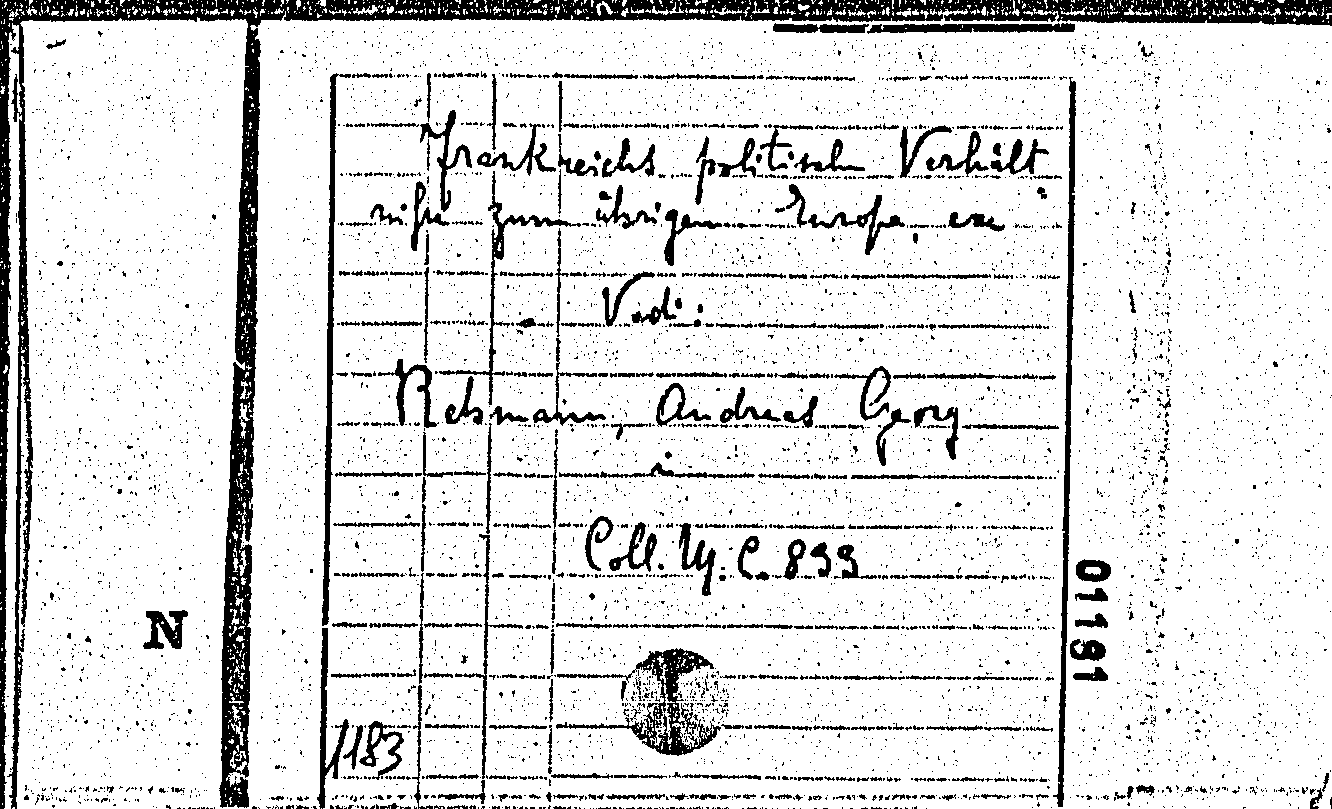 Frankreichs politische Verhält
nisse zum übrigen Europa, etc
Vedi:
Rebmann, Andreas Georg
i
Coll. M. C. 899
N
01191
1183